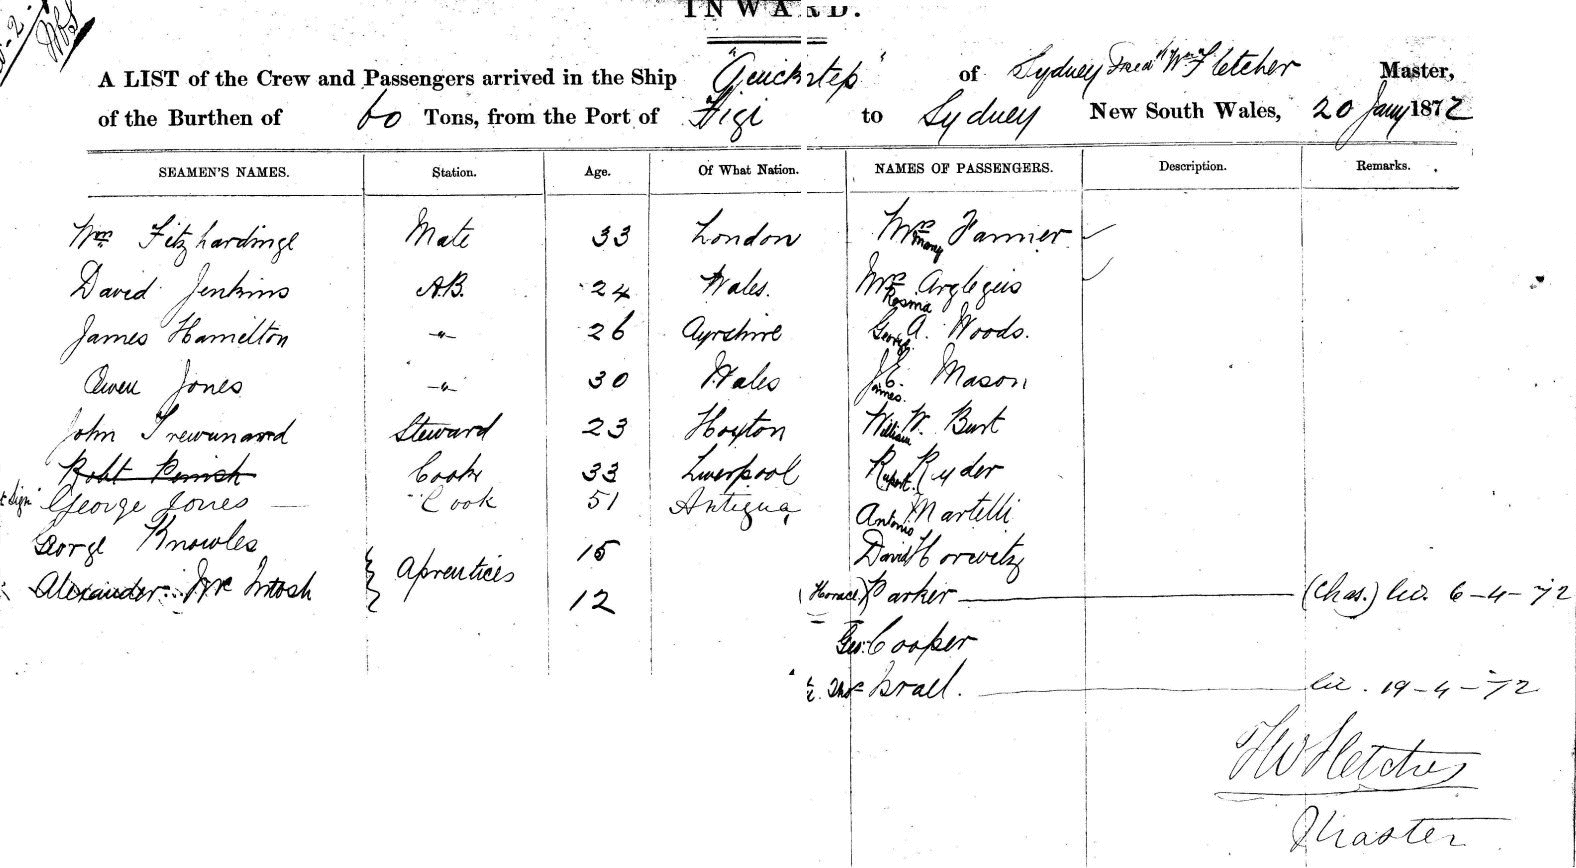 INWARD.
A LIST of the Crew and Passengers arrived in the Ship "Quickstep" of Sydney Fredk Wm Fletcher Master,
of the Burthen of 60 Tons, from the Port of Figi to Sydney New South Wales, 20 Jany 1872
SEAMEN'S NAMES. Station. Age. Of What Nation. NAMES OF PASSENGERS. Description. Remarks.
Wm Fitzhardinge Mate 33 London Mrs Mary Farrier
David Jenkins A.B. 24 Wales. Mrs Rosina
James Hamilton -"- 26 Ayrshire George A. Woods.
Owen Jones -"- 30 Wales James E. Mason
John Steward 23 Hoxton William W. Burt
Robt Cook 33 Liverpool Robert Ryder
George Jones Cook 51 Antigua Antonio Martelli
George Knowles 15 David Horwitz
Alexander McIntosh Aprentices 12 (Horace) Parker (Chas.) 6-4-72
Geo. Cooper
Israel. 19-4-72
FW Fletcher
Master